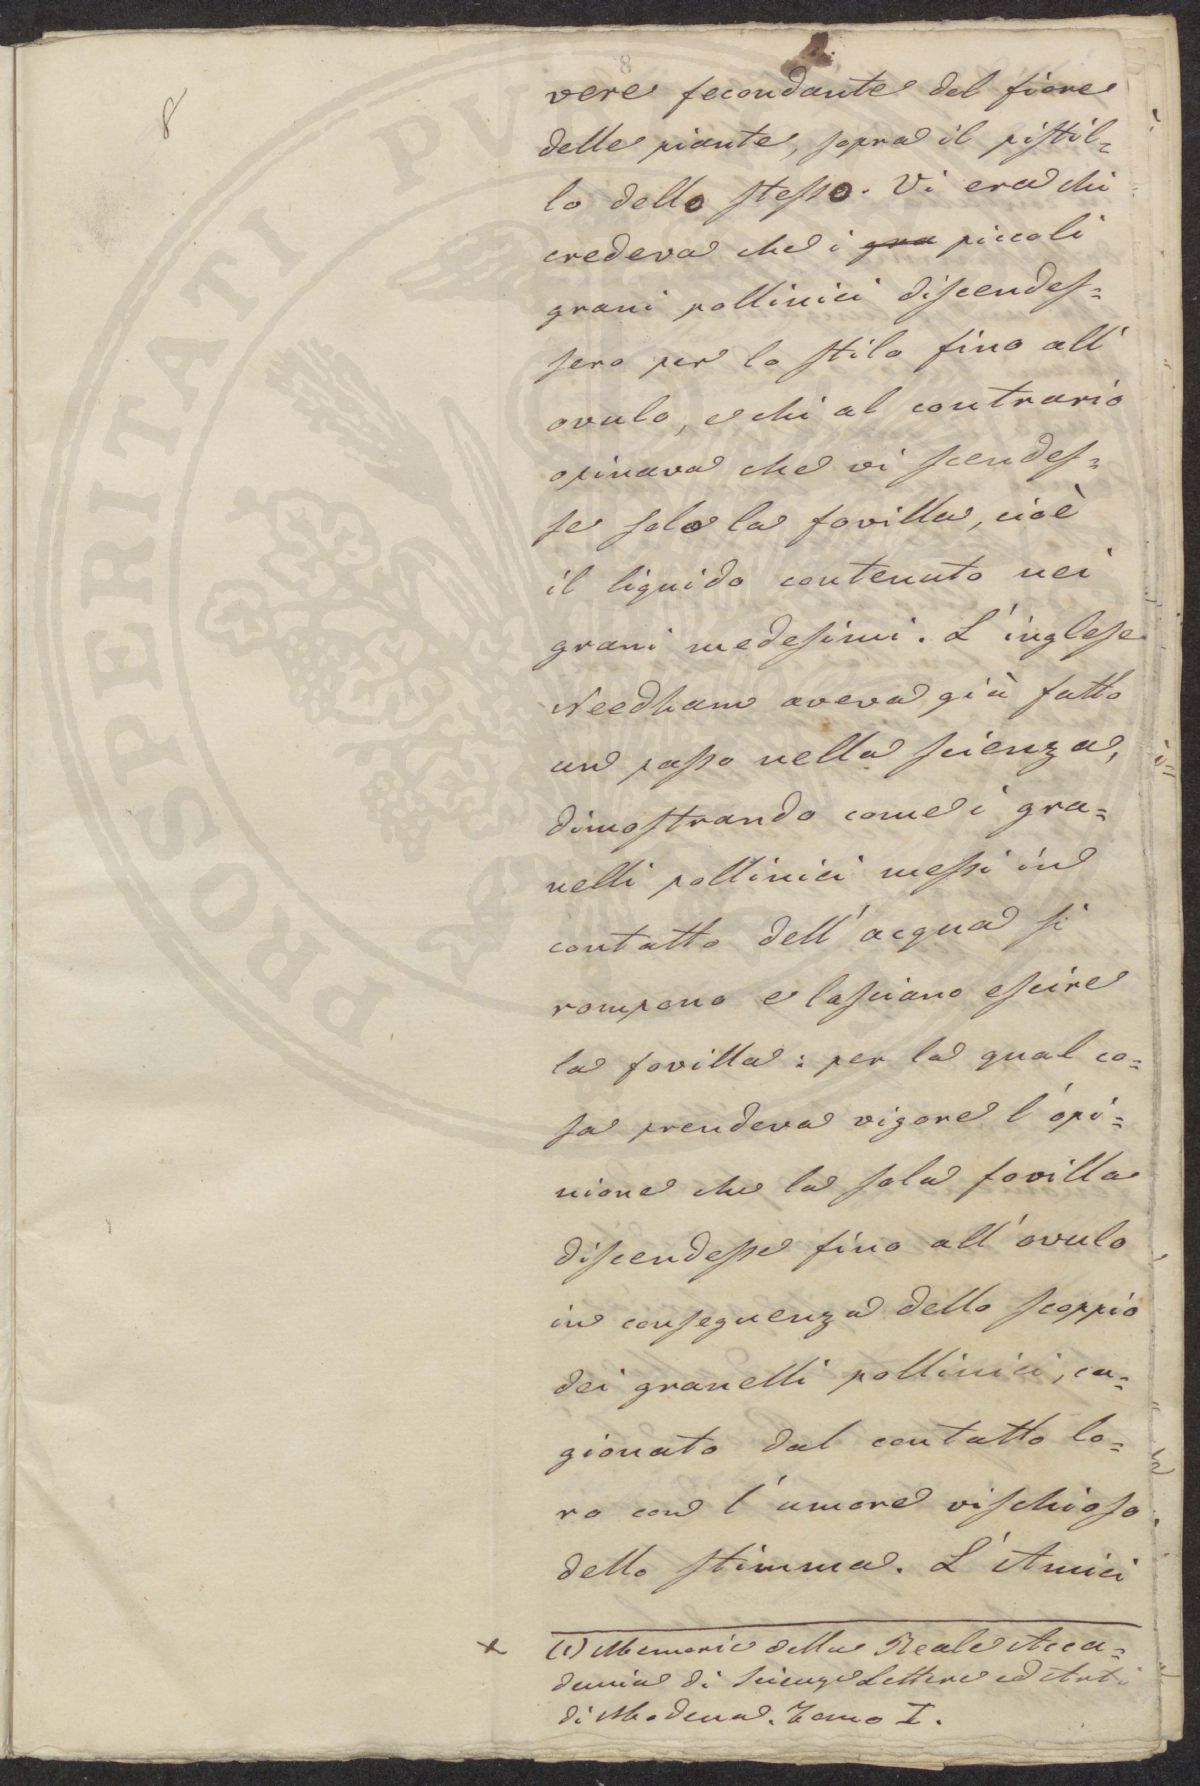 8
8
vere fecondante del fiore
delle piante, sopra il pistil=
lo dello stesso. Vi era chi
credeva che i gra piccoli
grani pollinici discendes=
sero per lo stilo fino all'
ovulo, e chi al contrario
opinava che vi scendes=
se solo la fovilla, cioè
il liquido contenuto nei
grani medesimi. L'inglese
Needham aveva già fatto
un passo nella scienza,
dimostrando come i gra=
nelli pollinici messi in
contatto dell'acqua si
rompono e lasciano escire
la fovilla: per la qual co=
sa prendeva vigore l'opi=
nione che la sola fovilla
discendesse fino all'ovulo
in conseguenza dello scoppio
dei granelli pollinici, ca=
gionato dal contatto lo=
ro con l'umore vischioso
dello stimma. L'Amici
x (1) Memorie della Reale Acca=
demia di Scienze Lettere ed Arti
di Modena. Tomo I.
PROSPERITATI PVB